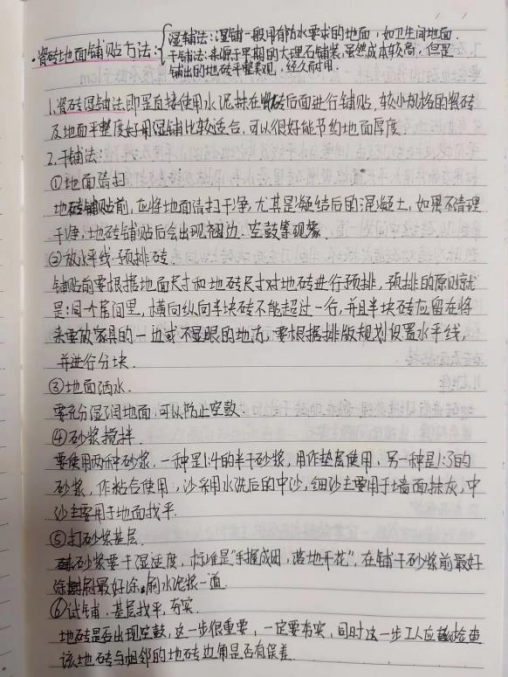 ·瓷砖地面铺贴方法:
湿铺法:湿铺一般用有防水要求的地面,如卫生间地面.
干铺法:来源于早期的大理石铺装,虽然成本较高,但是
铺出的地砖平整美观,经久耐用.
1.瓷砖湿铺法即是直接使用水泥抹在瓷砖后面进行铺贴,较小规格的瓷砖
及地面平整度好用湿铺比较适合,可以很好能节约地面厚度.
2.干铺法:
①地面清扫
地砖铺贴前,应将地面清扫干净,尤其是凝结后的混凝土,如果不清理
干净,地砖铺贴后会出现翘边.空鼓等现象.
②放水平线.预排砖.
铺贴前要根据地面尺寸和地砖尺寸对地砖进行预排,预排的原则就
是:同一房间里,横向纵向半块砖不能超过一行,并且半块砖应留在将
来要放家具的一边或不显眼的地方,要根据排版规划设置水平线,
并进行分块.
③地面洒水.
要充分湿润地面,可以防止空鼓.
④砂浆搅拌
要使用两种砂浆,一种是1:4的半干砂浆,用作垫层使用,另一种是1:3的
砂浆,作粘合使用,沙采用水洗后的中沙,细沙主要用于墙面抹灰,中
沙主要用于地面找平.
⑤打砂浆基层.
砂浆要干湿适度,标准是"手握成团,落地开花".在铺干砂浆前最好
涂刷最好涂刷水泥浆一道.
⑥试铺.基层找平,夯实.
地砖是否出现空鼓,这一步很重要,一定要夯实,同时这一步工人应检查
该地砖与相邻的地砖边角是否有误差.